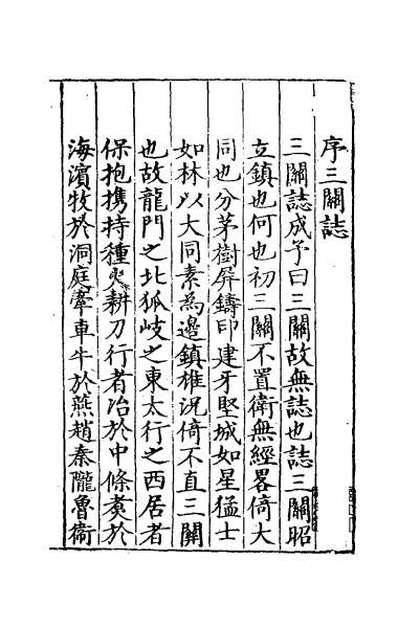 序三關誌
三關誌成予曰三關故無誌也誌三關昭
立鎮也何也初三關不置衛無經畧倚大
同也分茅樹屏鑄印建牙堅城如星猛士
如林以大同素為邊鎮惟況倚不直三關
也故龍門之北狐岐之東太行之西居者
保抱携持種耕刀行者冶於中條煑於
海濵牧於洞庭牽車牛於燕趙秦隴魯衛